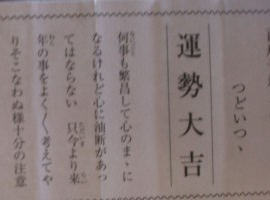 つどいつゝ
運勢大吉
何事も繁昌して心のまゝに
なるけれど心に油断があっ
てはならない 只今より来
年の事をよく〳〵考えてや
りそこなわぬ様十分の注意